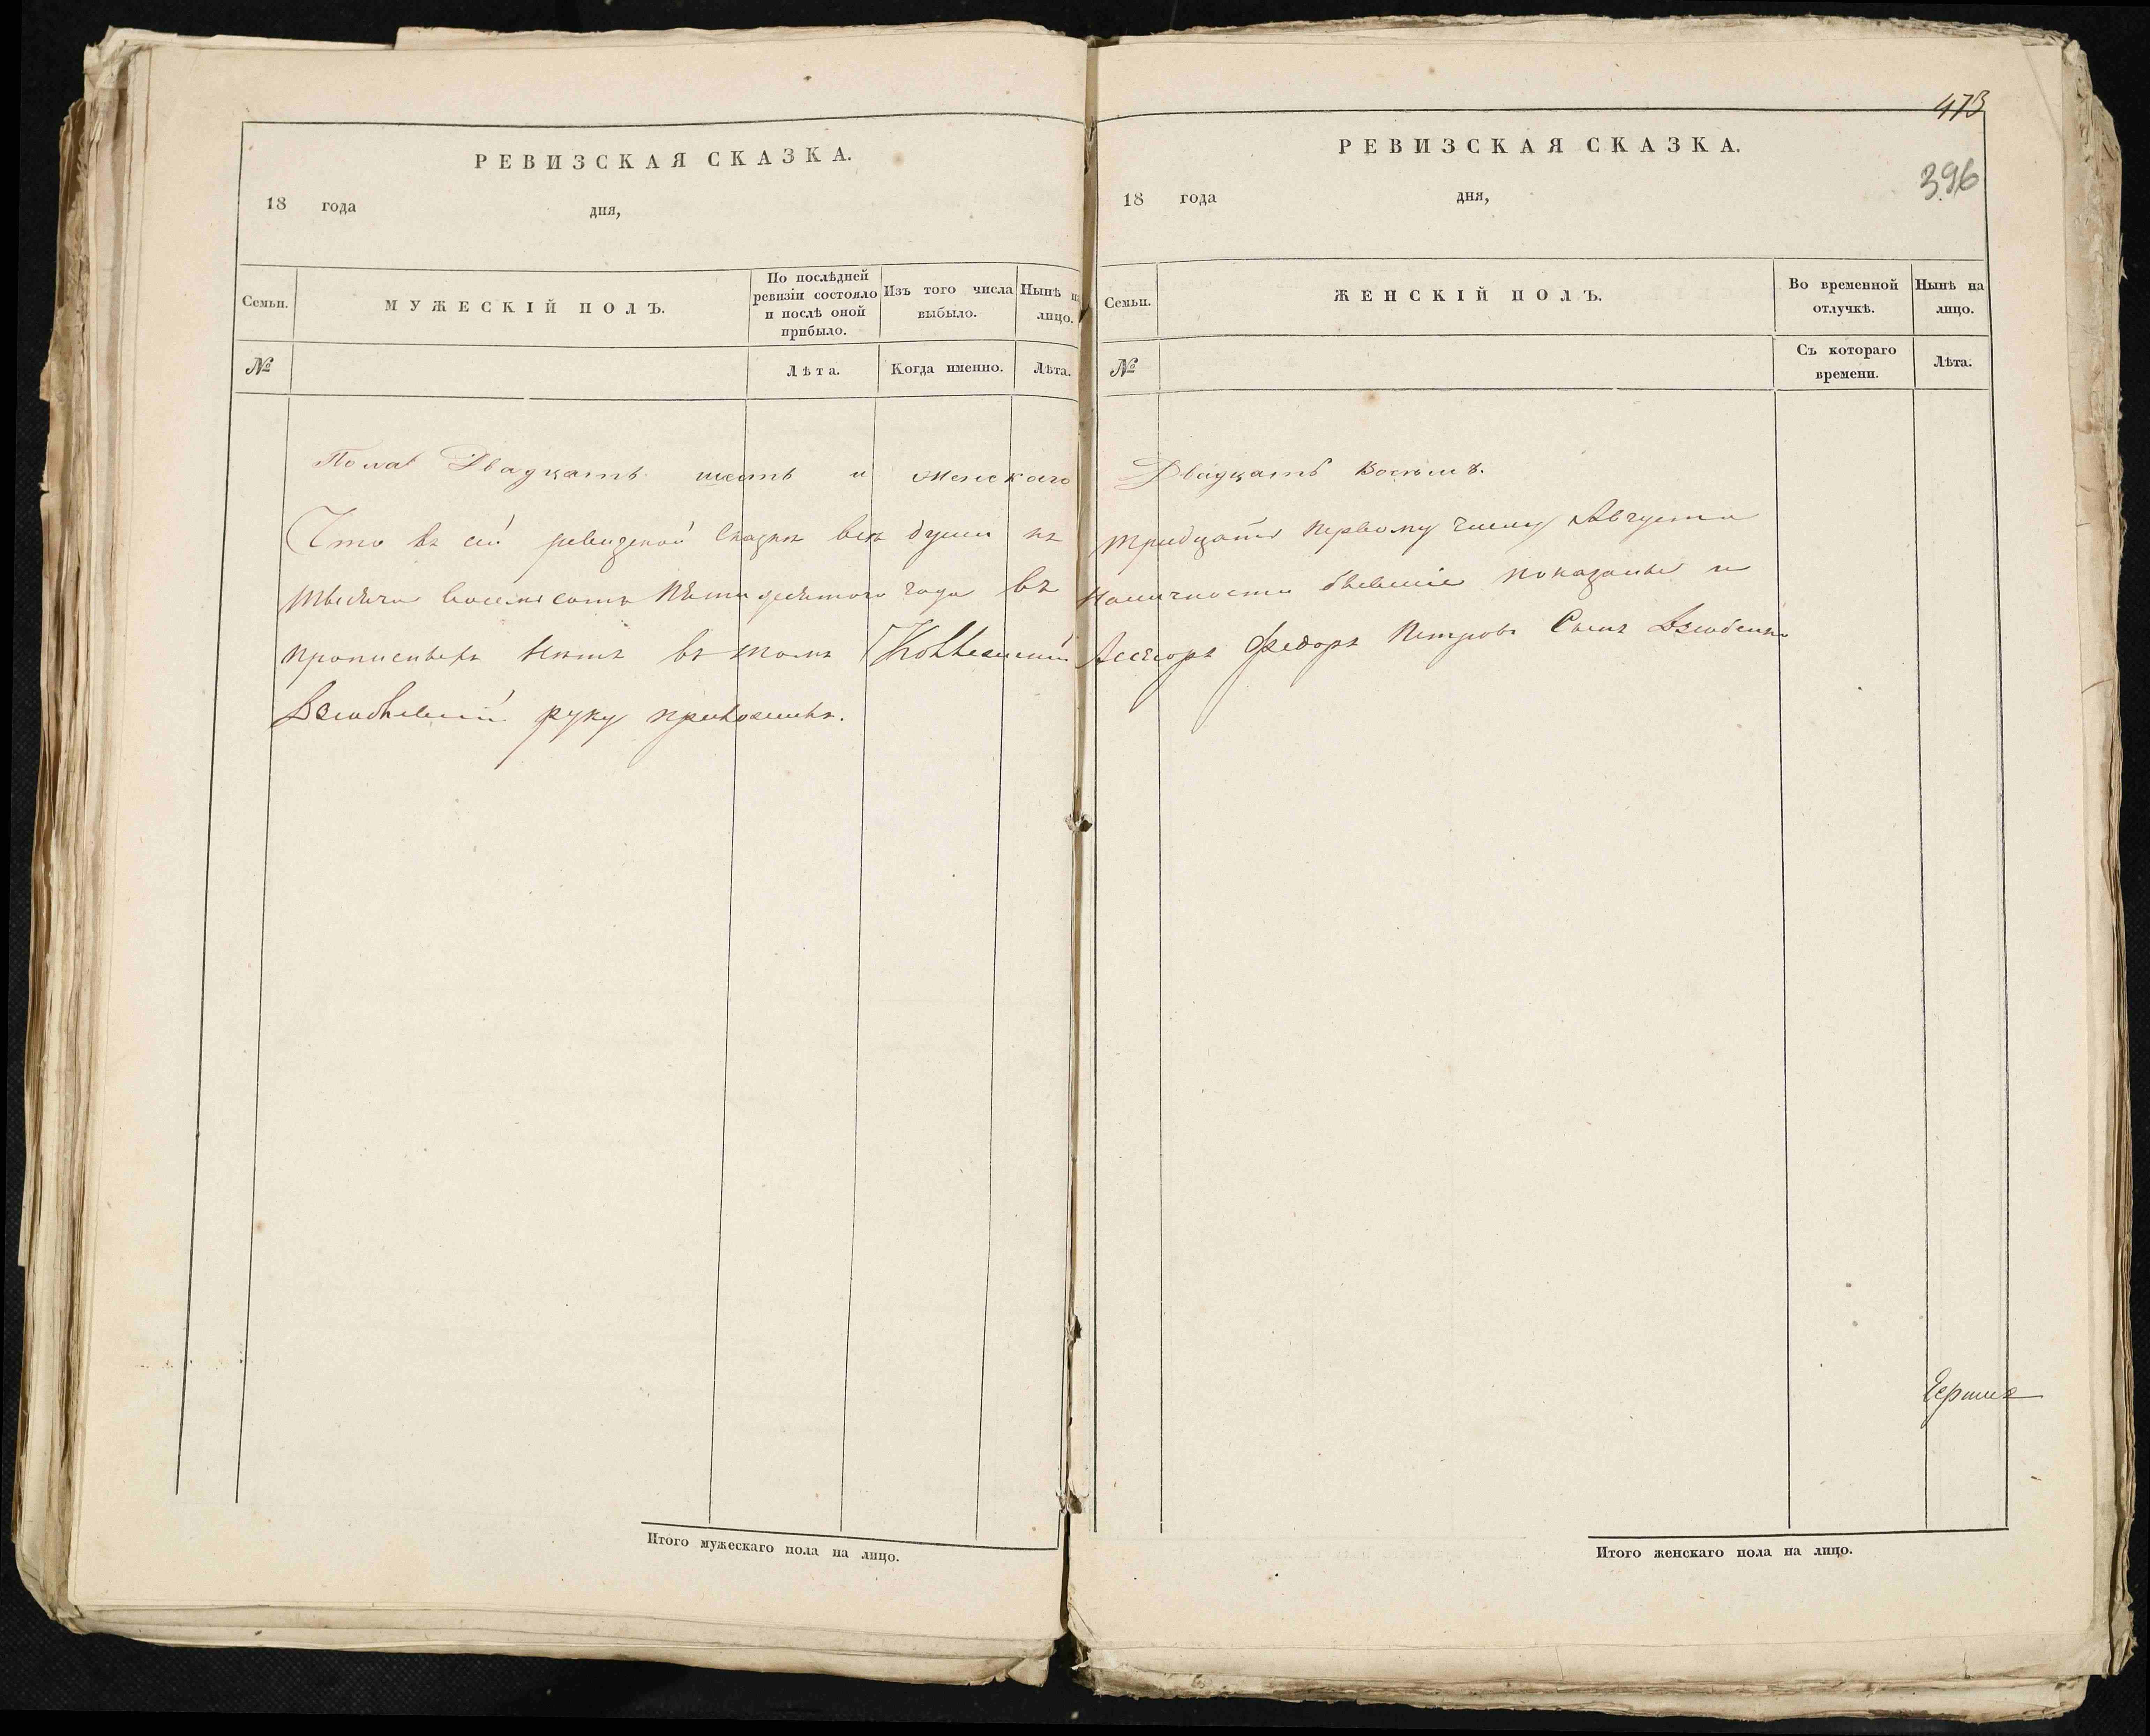 РЕВИЗСКАЯ СКАЗКА.
18 года дня,
Семьи. МУЖЕСКІЙ ПОЛЪ. По послѣдней ревизіи состояло и послѣ оной прибыло. Изъ того числа выбыло. Нынѣ на лицо.
№ Лѣта. Когда именно. Лѣта.
Пола Двадцать шесть и женскаго
Что въ сей ревизской сказкѣ всѣ души къ
тысяча восемьсотъ пятидесятого года въ
прописныхъ нѣтъ въ томъ Коллежскій
руку приложилъ.
Итого мужескаго пола на лицо.
473
396
РЕВИЗСКАЯ СКАЗКА.
18 года дня,
Семьи. ЖЕНСКІЙ ПОЛЪ. Во временной отлучкѣ. Нынѣ на лицо.
№ Съ котораго времени. Лѣта.
Двадцать восемь.
тридцать первому числу Августа
наличности бывшіе показаны и
Асесоръ Федоръ Петровъ Сынъ
Итого женскаго пола на лицо.